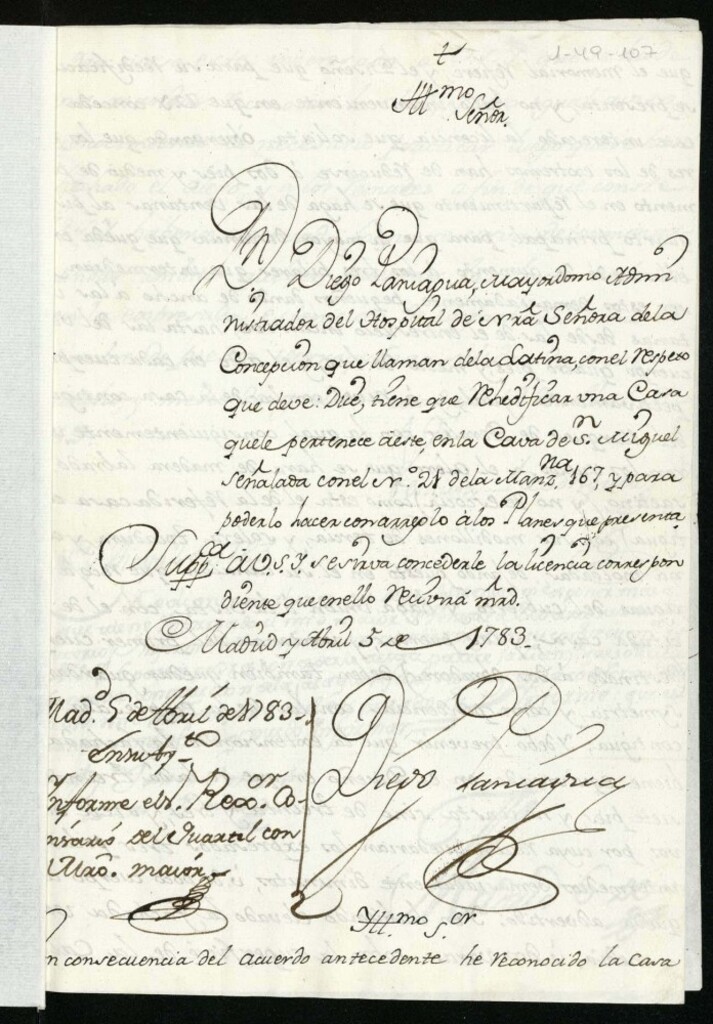 1-49-107
Yllmo
Señor.
Dn Diego Paniagua, Mayordomo Admi
nistrador del Hospital de Nrã Señora dela
Concepcion que llaman dela Latina, con el respeto
que deve: Dice, tiene que Rehedificar una Casa
quele pertenece a este, en la Cava de Sn Miguel
señalada con el N.º 21 de la Manzna 167, y para
poderlo hacer con arreglo à los Planes que presenta,
Suppca à V.S.Y. se sirva concederle la licencia correspon
diente que en ello Recivirá mrd.
Madrid y Abril 5 de 1783.
Diego Paniagua
Mad.d 5 de Abril de 1783.
En su Aytto
Informe el s. Rexor. Co-
misario del Quartel con
Mro. maior.
Yllmo sor
En consecuencia del Acuerdo antecedente he reconocido la Casa